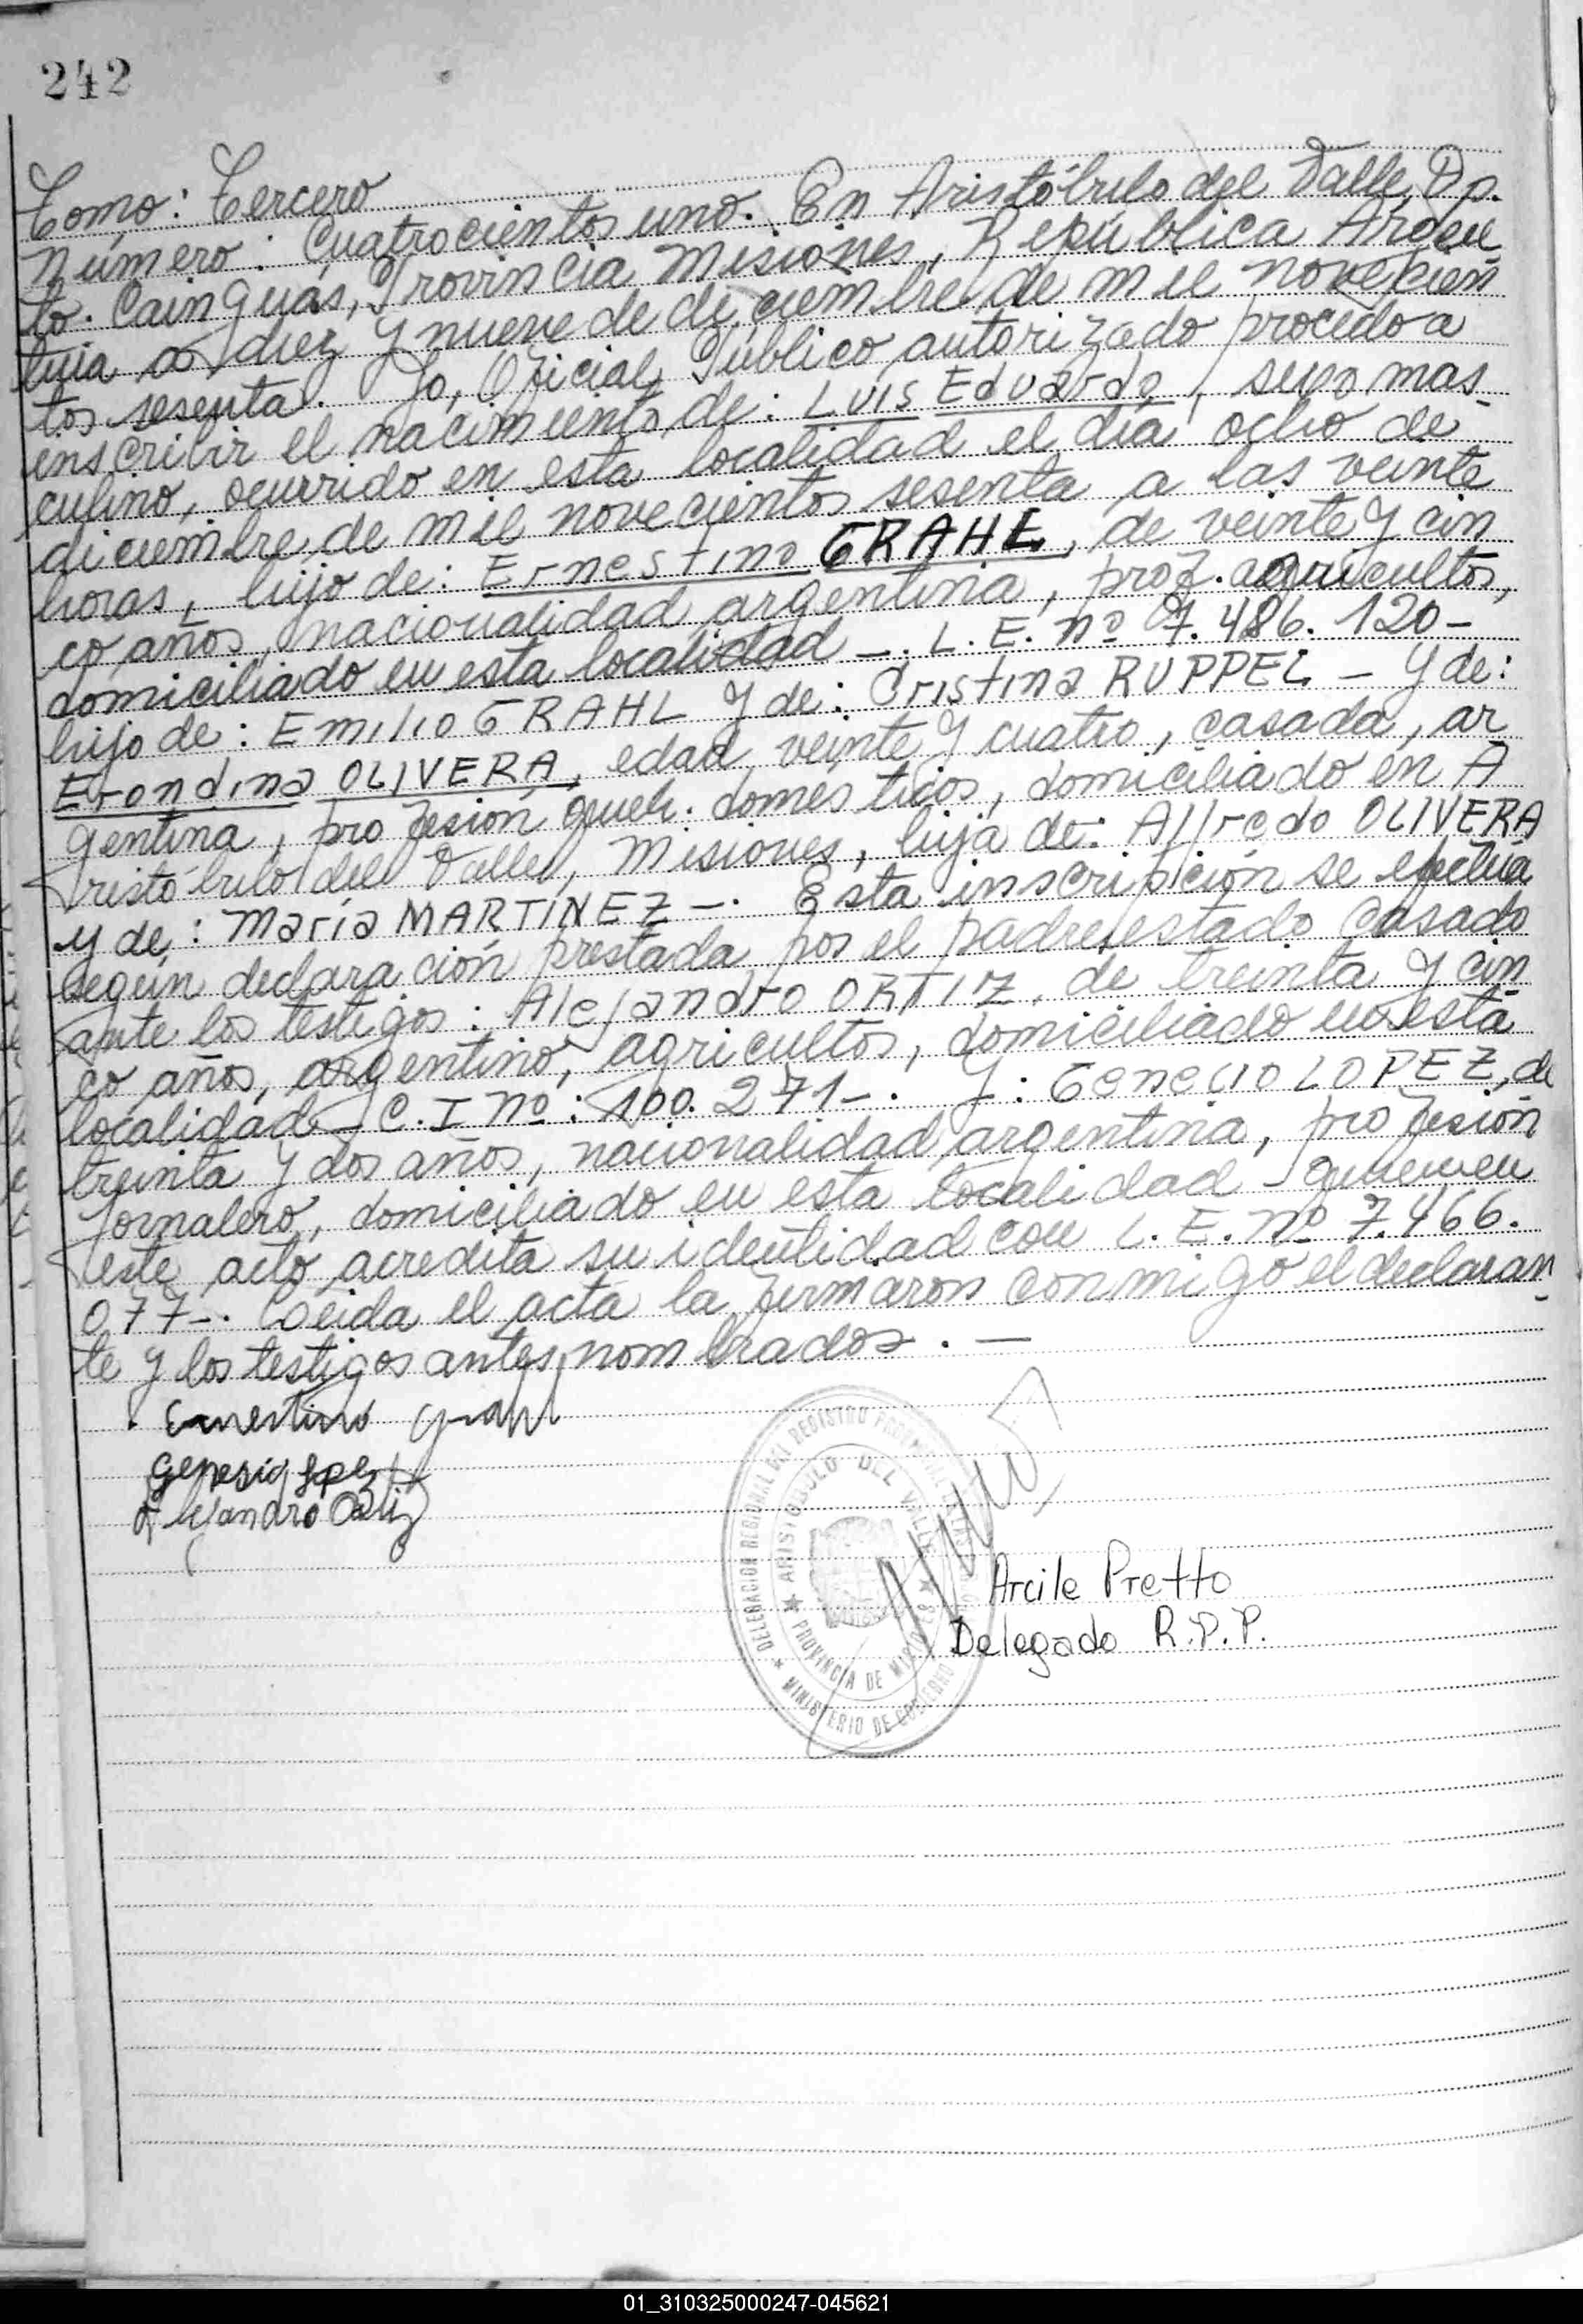 242
Tomo: Tercero
Número: Cuatrocientos uno. En Aristóbulo del Valle, Dp.
to. Cainguás, Provincia Misiones, República Argen
tina a diez y nueve de diciembre de mil novecien
tos sesenta. Yo, Oficial Público autorizado procedo a
inscribir el nacimiento de: LUIS Eduardo, sexo mas-
culino, ocurrido en esta localidad el día ocho de
diciembre de mil novecientos sesenta a las veinte
horas, hijo de: Ernestino GRAHL, de veinte y cin
co años, nacionalidad argentina, prof. agricultor,
domiciliado en esta localidad -. L. E. nº 7.486.120-
hijo de: Emilio GRAHL y de: Cristina RUPPEL - y de:
Erondina OLIVERA, edad veinte y cuatro, casada, ar
gentina, profesión queh. domésticos, domiciliado en A
ristóbulo del Valle, Misiones, hija de: Alfredo OLIVERA
y de: María MARTINEZ -. Esta inscripción se efectúa
según declaración prestada por el padre, estado casado
ante los testigos: Alejandro ORTIZ, de treinta y cin
co años, argentino, agricultor, domiciliado en esta
localidad - C.I nº: 100.271-. y: Genecio LOPEZ, de
treinta y dos años, nacionalidad argentina, profesión
jornalero, domiciliado en esta localidad - quien en
este acto acredita su identidad con L. E. nº 7.466.
077-. Leída el acta la firmaron conmigo el declaran-
te y los testigos antes nombrados. -
Ernestino Grahl
Genesio Lopez
Alejandro Ortiz
DELEGACION REGIONAL DEL REGISTRO
ARISTOBULO DEL VALLE
PROVINCIA DE MISIONES
MINISTERIO DE GOBIERNO
Arcile Pretto
Delegado R.P.P.
01_310325000247-045621